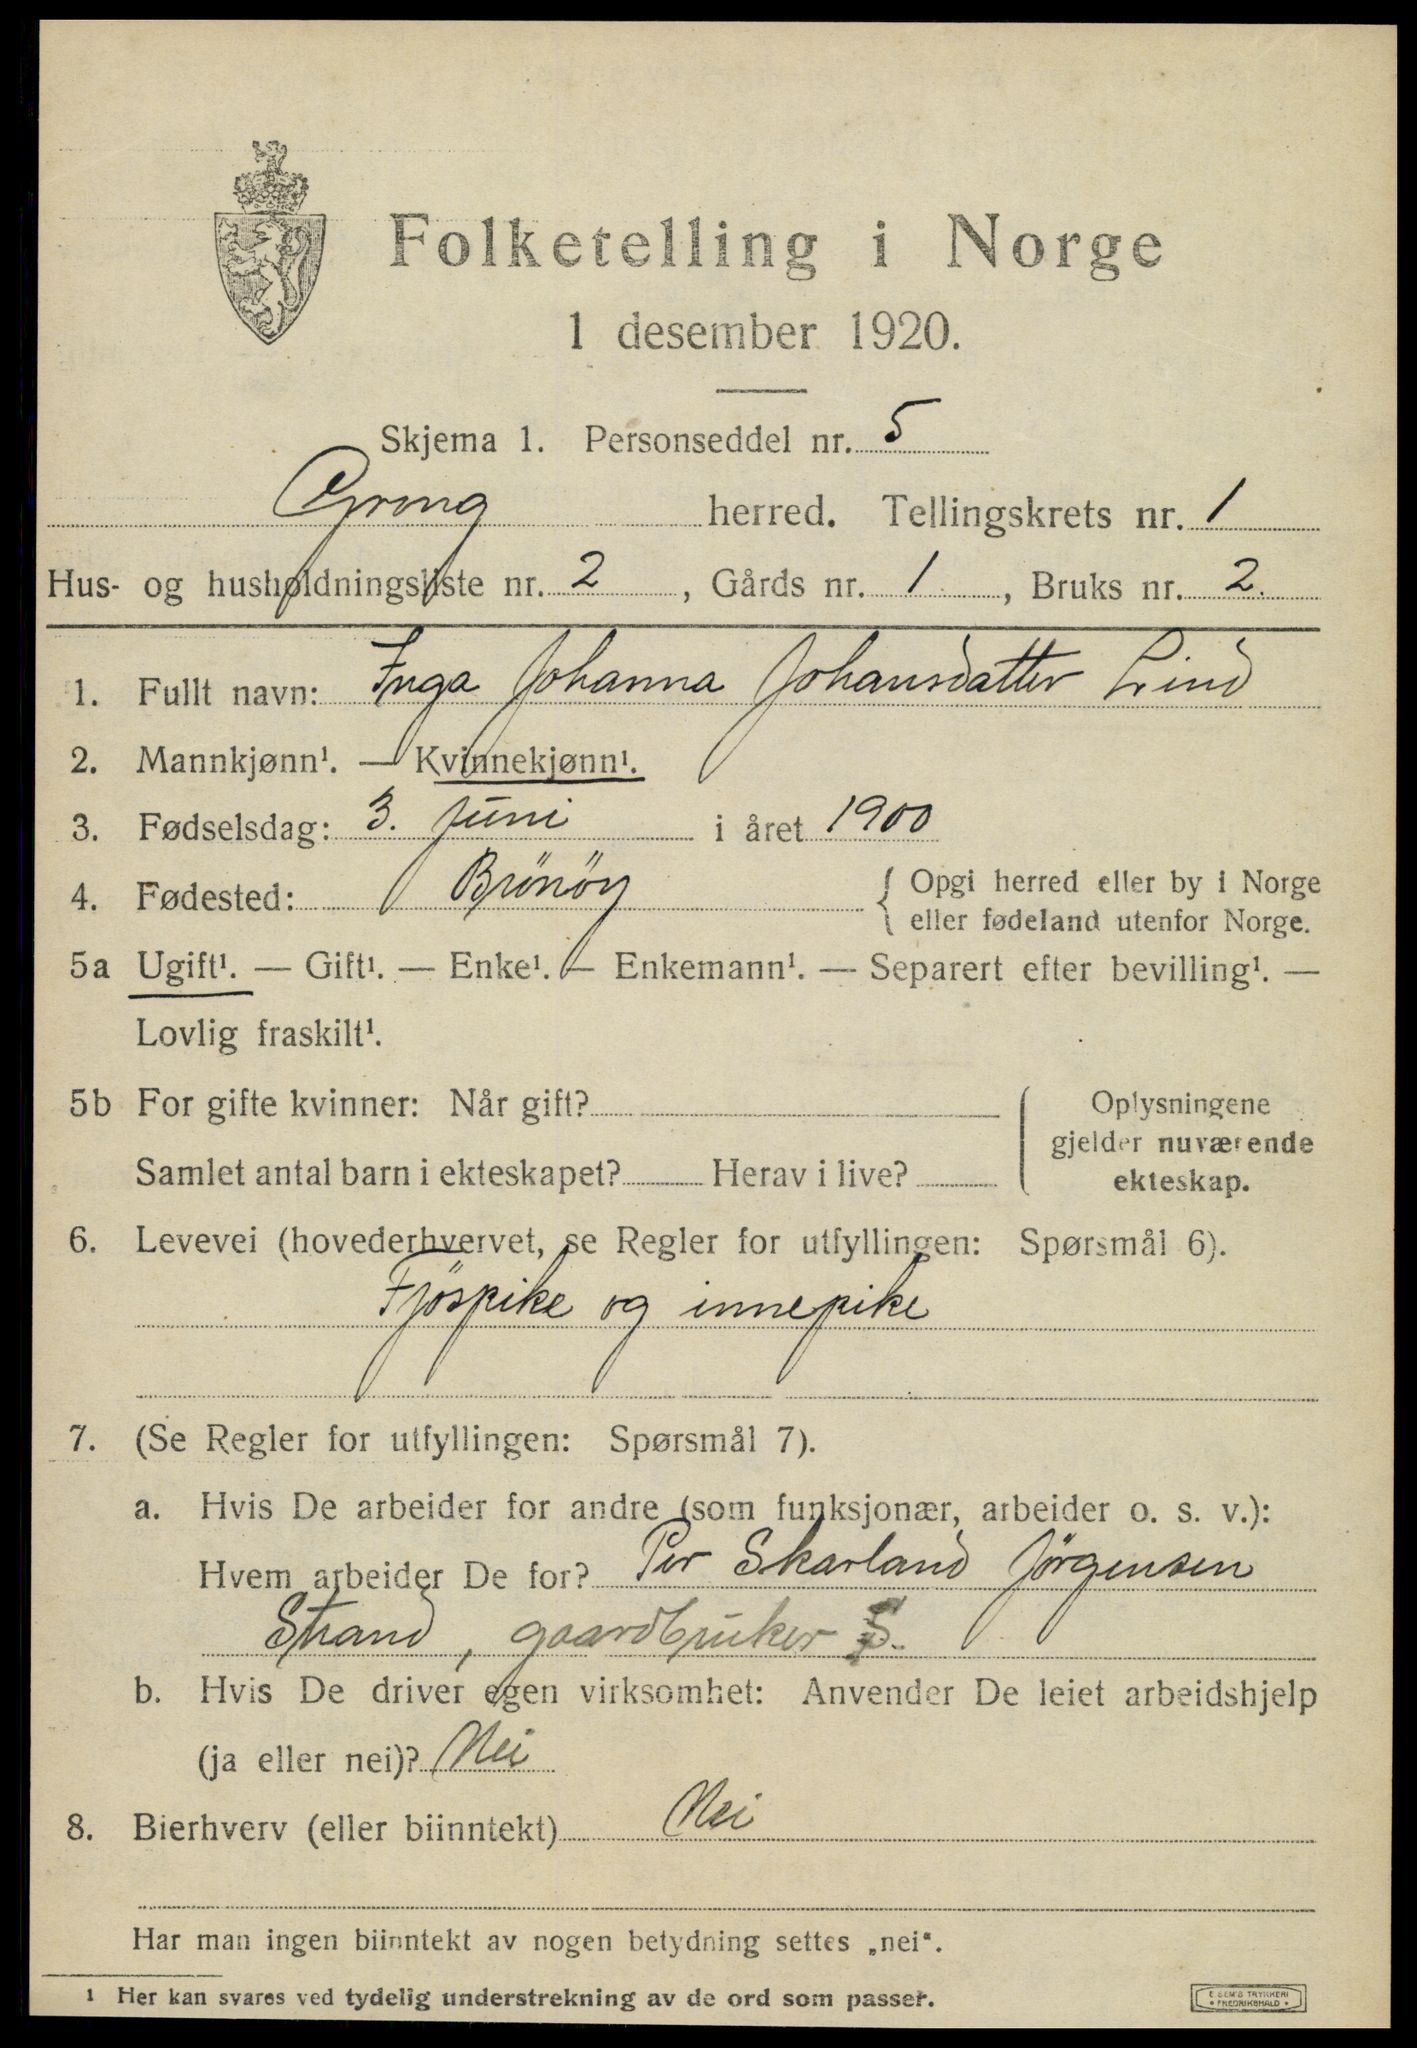 Folketelling i Norge
1 desember 1920.
Skjema 1. Personseddel nr. 5
Grong herred. Tellingskrets nr. 1
Hus- og husholdningsliste nr. 2, Gårds nr. 1, Bruks nr. 2.
1. Fullt navn: Inga Johanna Johansdatter Lind
2. Mannkjønn¹. — Kvinnekjønn¹.
3. Fødselsdag: 3. Juni i året 1900
4. Fødested: Brönöy { Opgi herred eller by i Norge
eller fødeland utenfor Norge.
5a Ugift¹. — Gift¹. — Enke¹. — Enkemann¹. — Separert efter bevilling¹. —
Lovlig fraskilt¹.
5b For gifte kvinner: Når gift? Oplysningene
gjelder nuværende
Samlet antal barn i ekteskapet? Herav i live? ekteskap.
6. Levevei (hovederhvervet, se Regler for utfyllingen: Spørsmål 6).
Fjöspike og innepike
7. (Se Regler for utfyllingen: Spørsmål 7).
a. Hvis De arbeider for andre (som funksjonær, arbeider o. s. v.):
Hvem arbeider De for? Per Skarland Jörgensen
Strand, gaardbruker S.
b. Hvis De driver egen virksomhet: Anvender De leiet arbeidshjelp
(ja eller nei)? Nei
8. Bierhverv (eller biinntekt) Nei
Har man ingen biinntekt av nogen betydning settes „nei“.
¹ Her kan svares ved tydelig understrekning av de ord som passer.
E. SEM'S TRYKKERI
• FREDRIKSHALD •